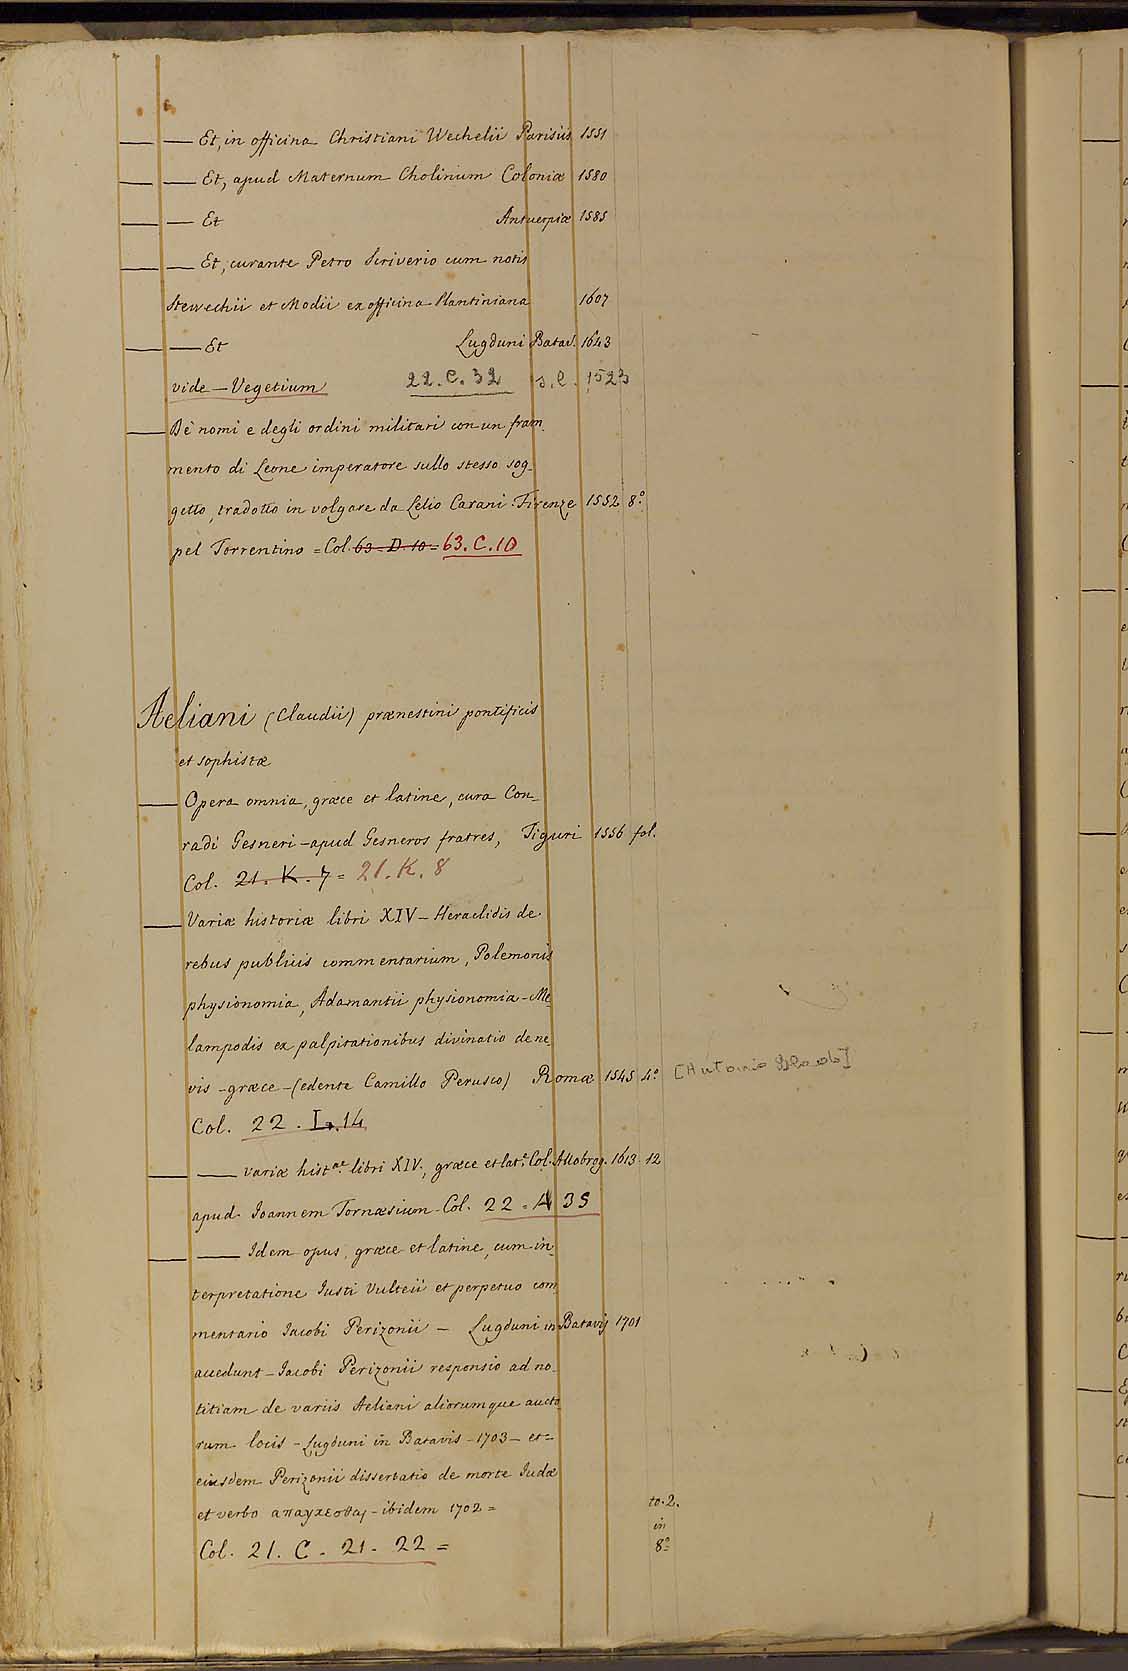 — — Et, in officina Christiani Wechelii Parisiis 1551
— — Et, apud Maternum Cholinum Coloniæ 1580
— — Et Antuerpiæ 1585
— — Et, curante Petro Scriverio cum notis
Stewechii et Modii ex officina Plantiniana 1607
— — Et Lugduni Batav. 1643
vide — Vegetium 22. C. 32 s. l. 1523
— De' nomi e degli ordini militari con un fram_
mento di Leone imperatore sullo stesso sog_
getto, tradotto in volgare da Lelio Carani. Firenze 1552 8.°
pel Torrentino = Col. 63. D. 10 = 63. C. 10
Aeliani (Claudii) prænestini pontificis
et sophistæ
— Opera omnia, græce et latine, cura Con_
radi Gesneri – apud Gesneros fratres, Tiguri 1556 fol.
Col. 21. K. 7 = 21. K. 8
— Variæ historiæ libri XIV – Heraclidis de
rebus publicis commentarium, Polemonis
physionomia, Adamantii physionomia – Me_
lampodis ex palpitationibus divinatio de ne_
vis – græce – (edente Camillo Perusco) Romæ 1545 4.° [Antonio Blado]
Col. 22. L. 14
— — variæ hist.æ libri XIV., græce et lat.e Col. Allobrog. 1613 12
apud Ioannem Tornæsium – Col. 22. A 35
— — Idem opus, græce et latine, cum in_
terpretatione Justi Vulteii et perpetuo com_
mentario Iacobi Perizonii — Lugduni in Batavis 1701
accedunt – Iacobi Perizonii responsio ad no_
titiam de variis Aeliani aliorumque aucto_
rum locis – Lugduni in Batavis – 1703 – et =
eiusdem Perizonii dissertatio de morte Judæ
et verbo απαγχεσθαι – ibidem 1702 = to. 2.
in
Col. 21. C. 21. 22 = 8.°